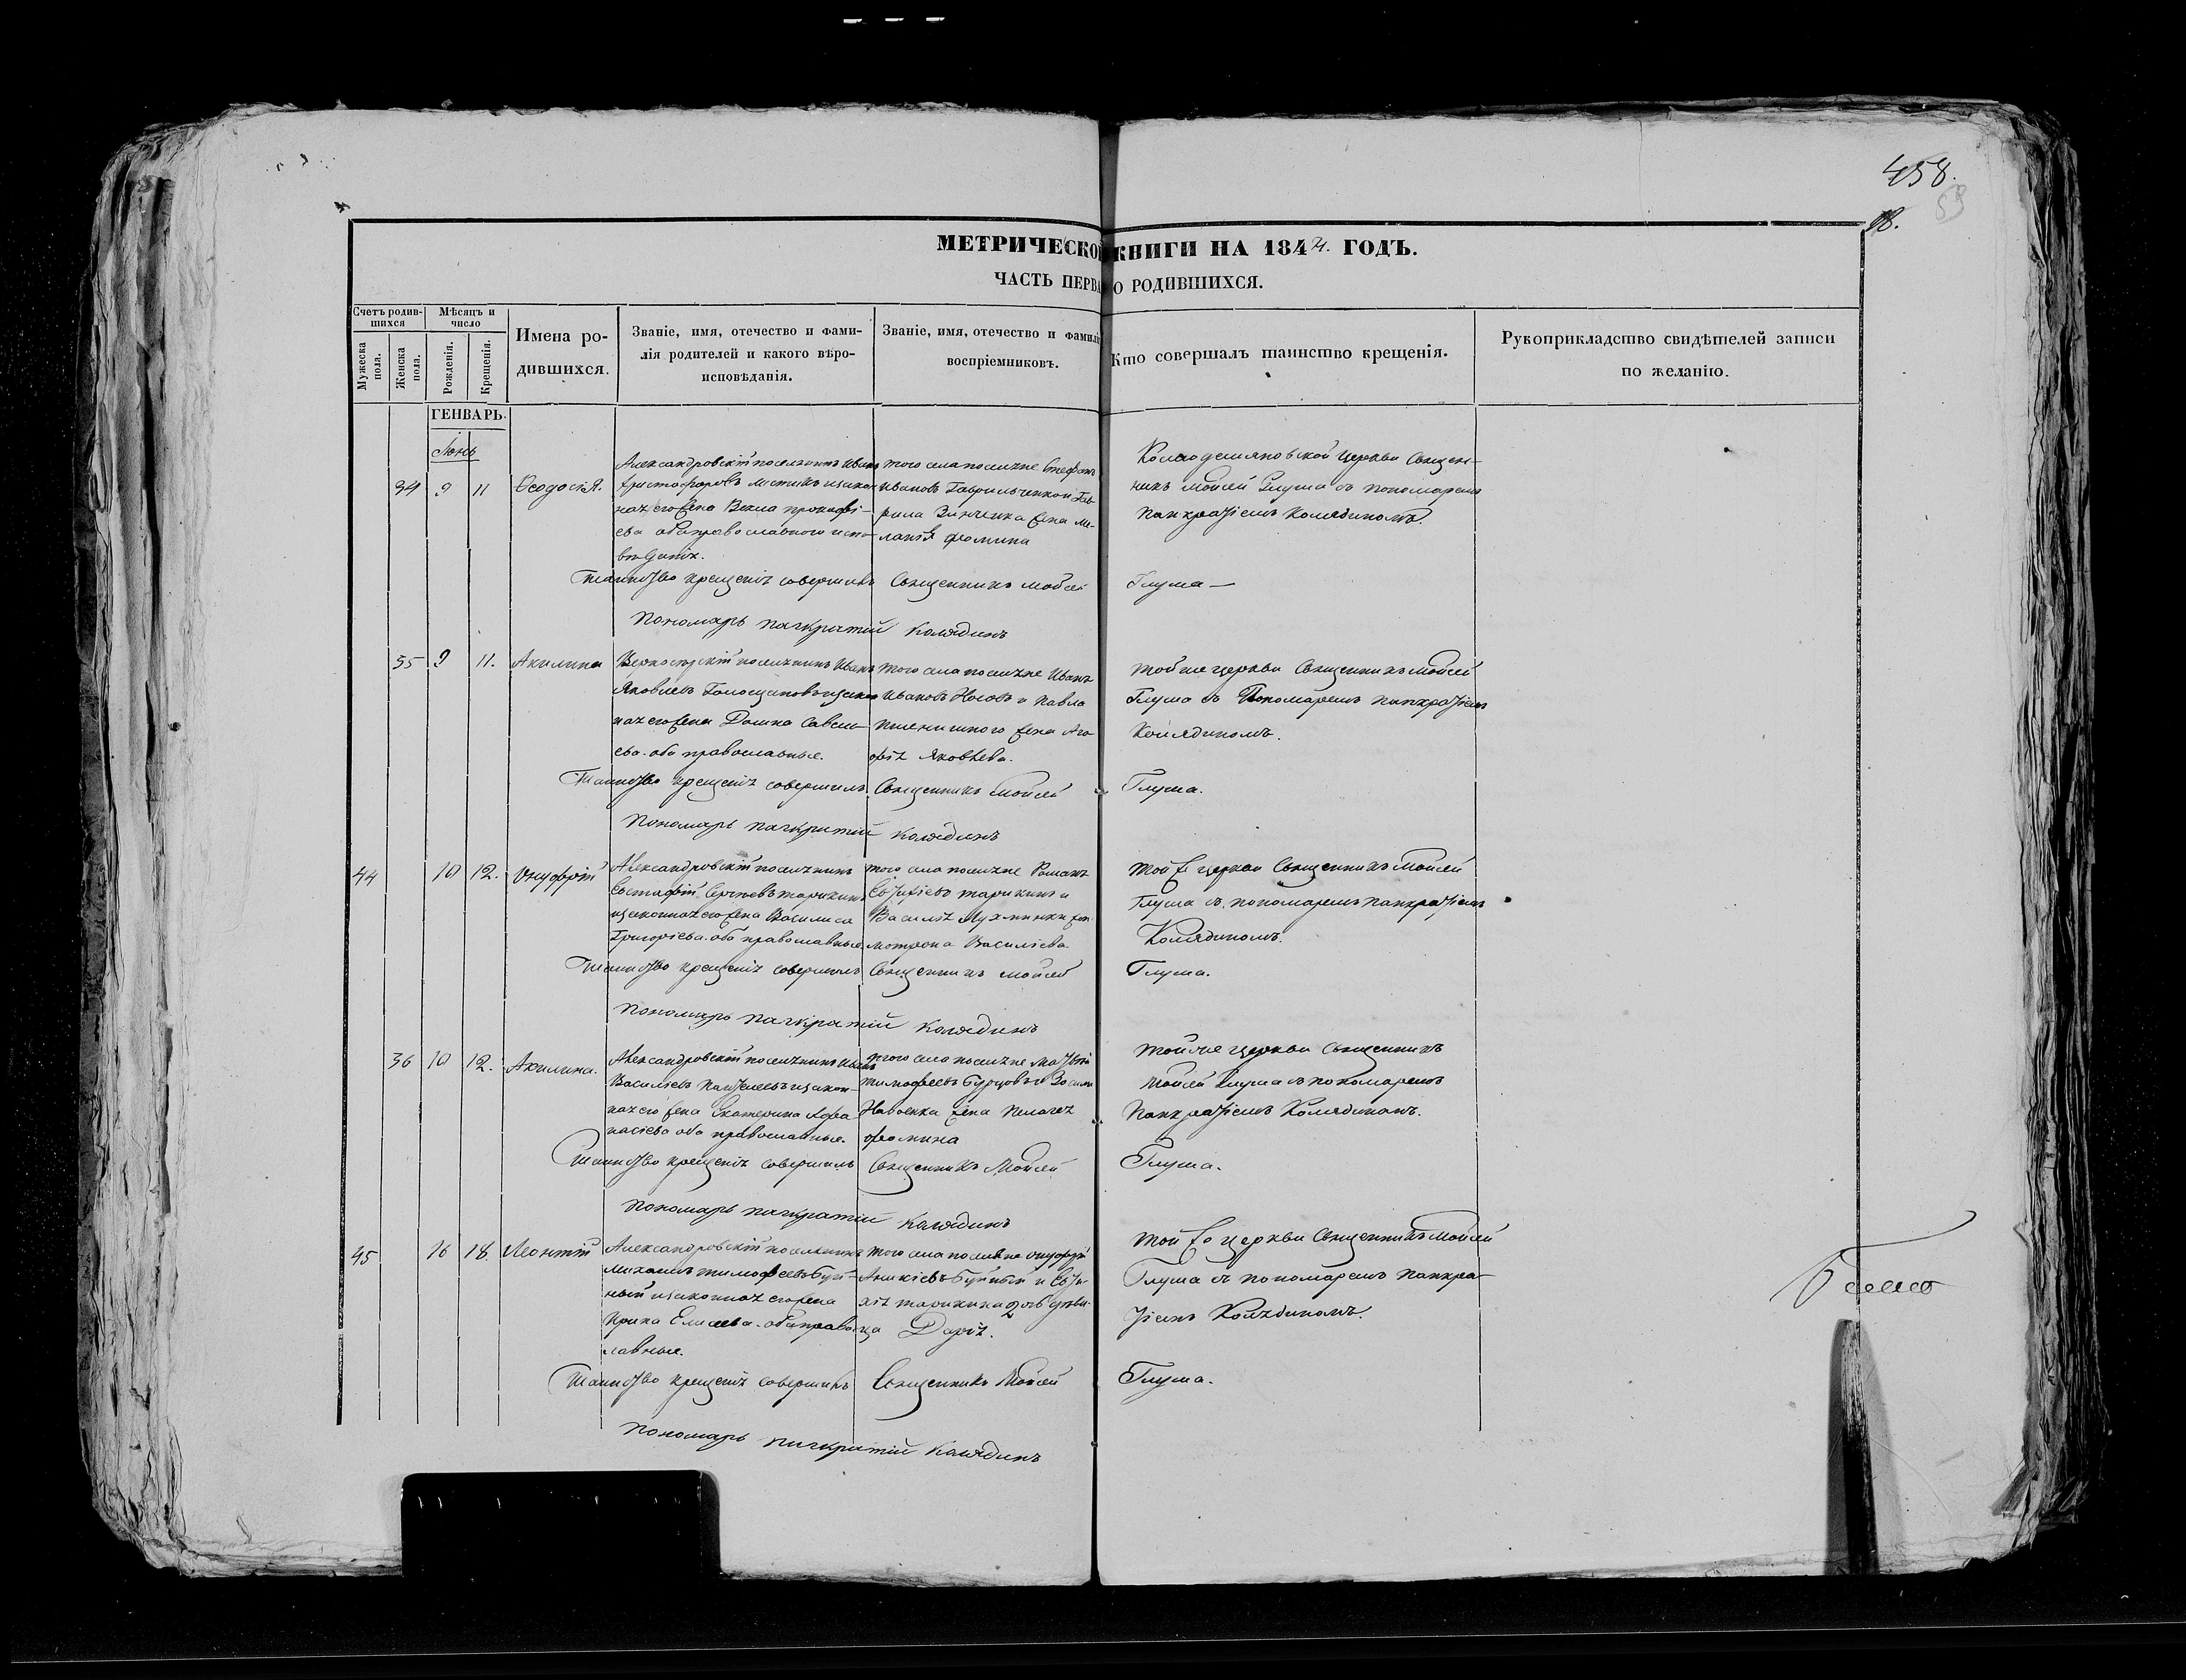 458.
59
МЕТРИЧЕСКОЙ КНИГИ НА 1844. ГОДЪ.
ЧАСТЬ ПЕРВА О РОДИВШИХСЯ.
Счетъ родив-
шихся
Мужеска пола.
Женска пола.
Мѣсяцъ и
число
Рожденія.
Крещенія.
Имена ро-
дившихся.
Званіе, имя, отечество и фами-
лія родителей и какого вѣро-
исповѣданія.
Званіе, имя, отечество и фамилія
воспріемниковъ.
Кто совершалъ таинство крещенія.
Рукоприкладство свидѣтелей записи
по желанію.
ГЕНВАРЬ.
Іюнь
34 9 11 Ѳеодосія.
Александровскій поселянинъ Иванъ
Христофоровъ и закон-
ная его жена Векла Прокофі-
ева оба православного испо-
вѣданія.
того села поселяне Стефанъ
Ивановъ Гаврильченко и Гав-
рила Зинченка жена Ме-
ланія Фомина
Колодезяновской церкви Священ-
никъ Моисей Глума съ пономаремъ
Панкратіемъ Колядиномъ.
Таинство крещенія совершилъ Священникъ Моисей Глума —
Пономарь Панкратій Колядинъ
35 9 11. Акилина
поселянинъ Иванъ
Яковлевъ и закон-
ная его жена Домна Савель-
ева. оба православные.
того села поселяне Иванъ
Ивановъ Носовъ и Павла
Пшеничного жена Ага-
фія Яковлева.
той же церкви Священникъ Моисей
Глума съ Пономаремъ Панкратіемъ
Колядиномъ.
Таинство крещенія совершилъ Священникъ Моисей Глума.
Пономарь Панкратій Колядинъ
44 10 12. Онуфрій
Александровскій поселянинъ
Евстафій Сергѣевъ Тарикинъ
и законная его жена Василиса
Григоріева. оба православные.
того села поселяне Романъ
Евтихіевъ Тарикинъ и
жена
Мотрона Василіева.
той же церкви Священникъ Моисей
Глума съ пономаремъ Панкратіемъ
Колядиномъ.
Таинство крещенія совершилъ Священникъ Моисей Глума.
Пономарь Панкратій Колядинъ
36 10 12. Акилина.
Александровскій поселянинъ Иванъ
Василіевъ и закон-
ная его жена Екатерина Афа-
насіева оба православные.
того села поселяне Матвѣй
Тимофеевъ Бурцовъ и
жена Пелагея
Фомина
той же церкви Священникъ
Моисей Глума съ пономаремъ
Панкратіемъ Колядиномъ.
Таинство крещенія совершилъ Священникъ Моисей Глума.
Пономарь Панкратій Колядинъ
45 16 18. Леонтій
Александровскій поселянинъ
Михаилъ Тимофеевъ Буй-
ный и законная его жена
Ирина Елисеева. оба право-
славные.
того села поселяне Онуфрій
Аникіевъ Буйный и Евти-
хія Тарикина дочь дѣви-
ца Дарія.
той же церкви Священникъ Моисей
Глума съ пономаремъ Панкра-
тіемъ Колядиномъ.
Таинство крещенія совершилъ Священникъ Моисей Глума.
Пономарь Панкратій Колядинъ